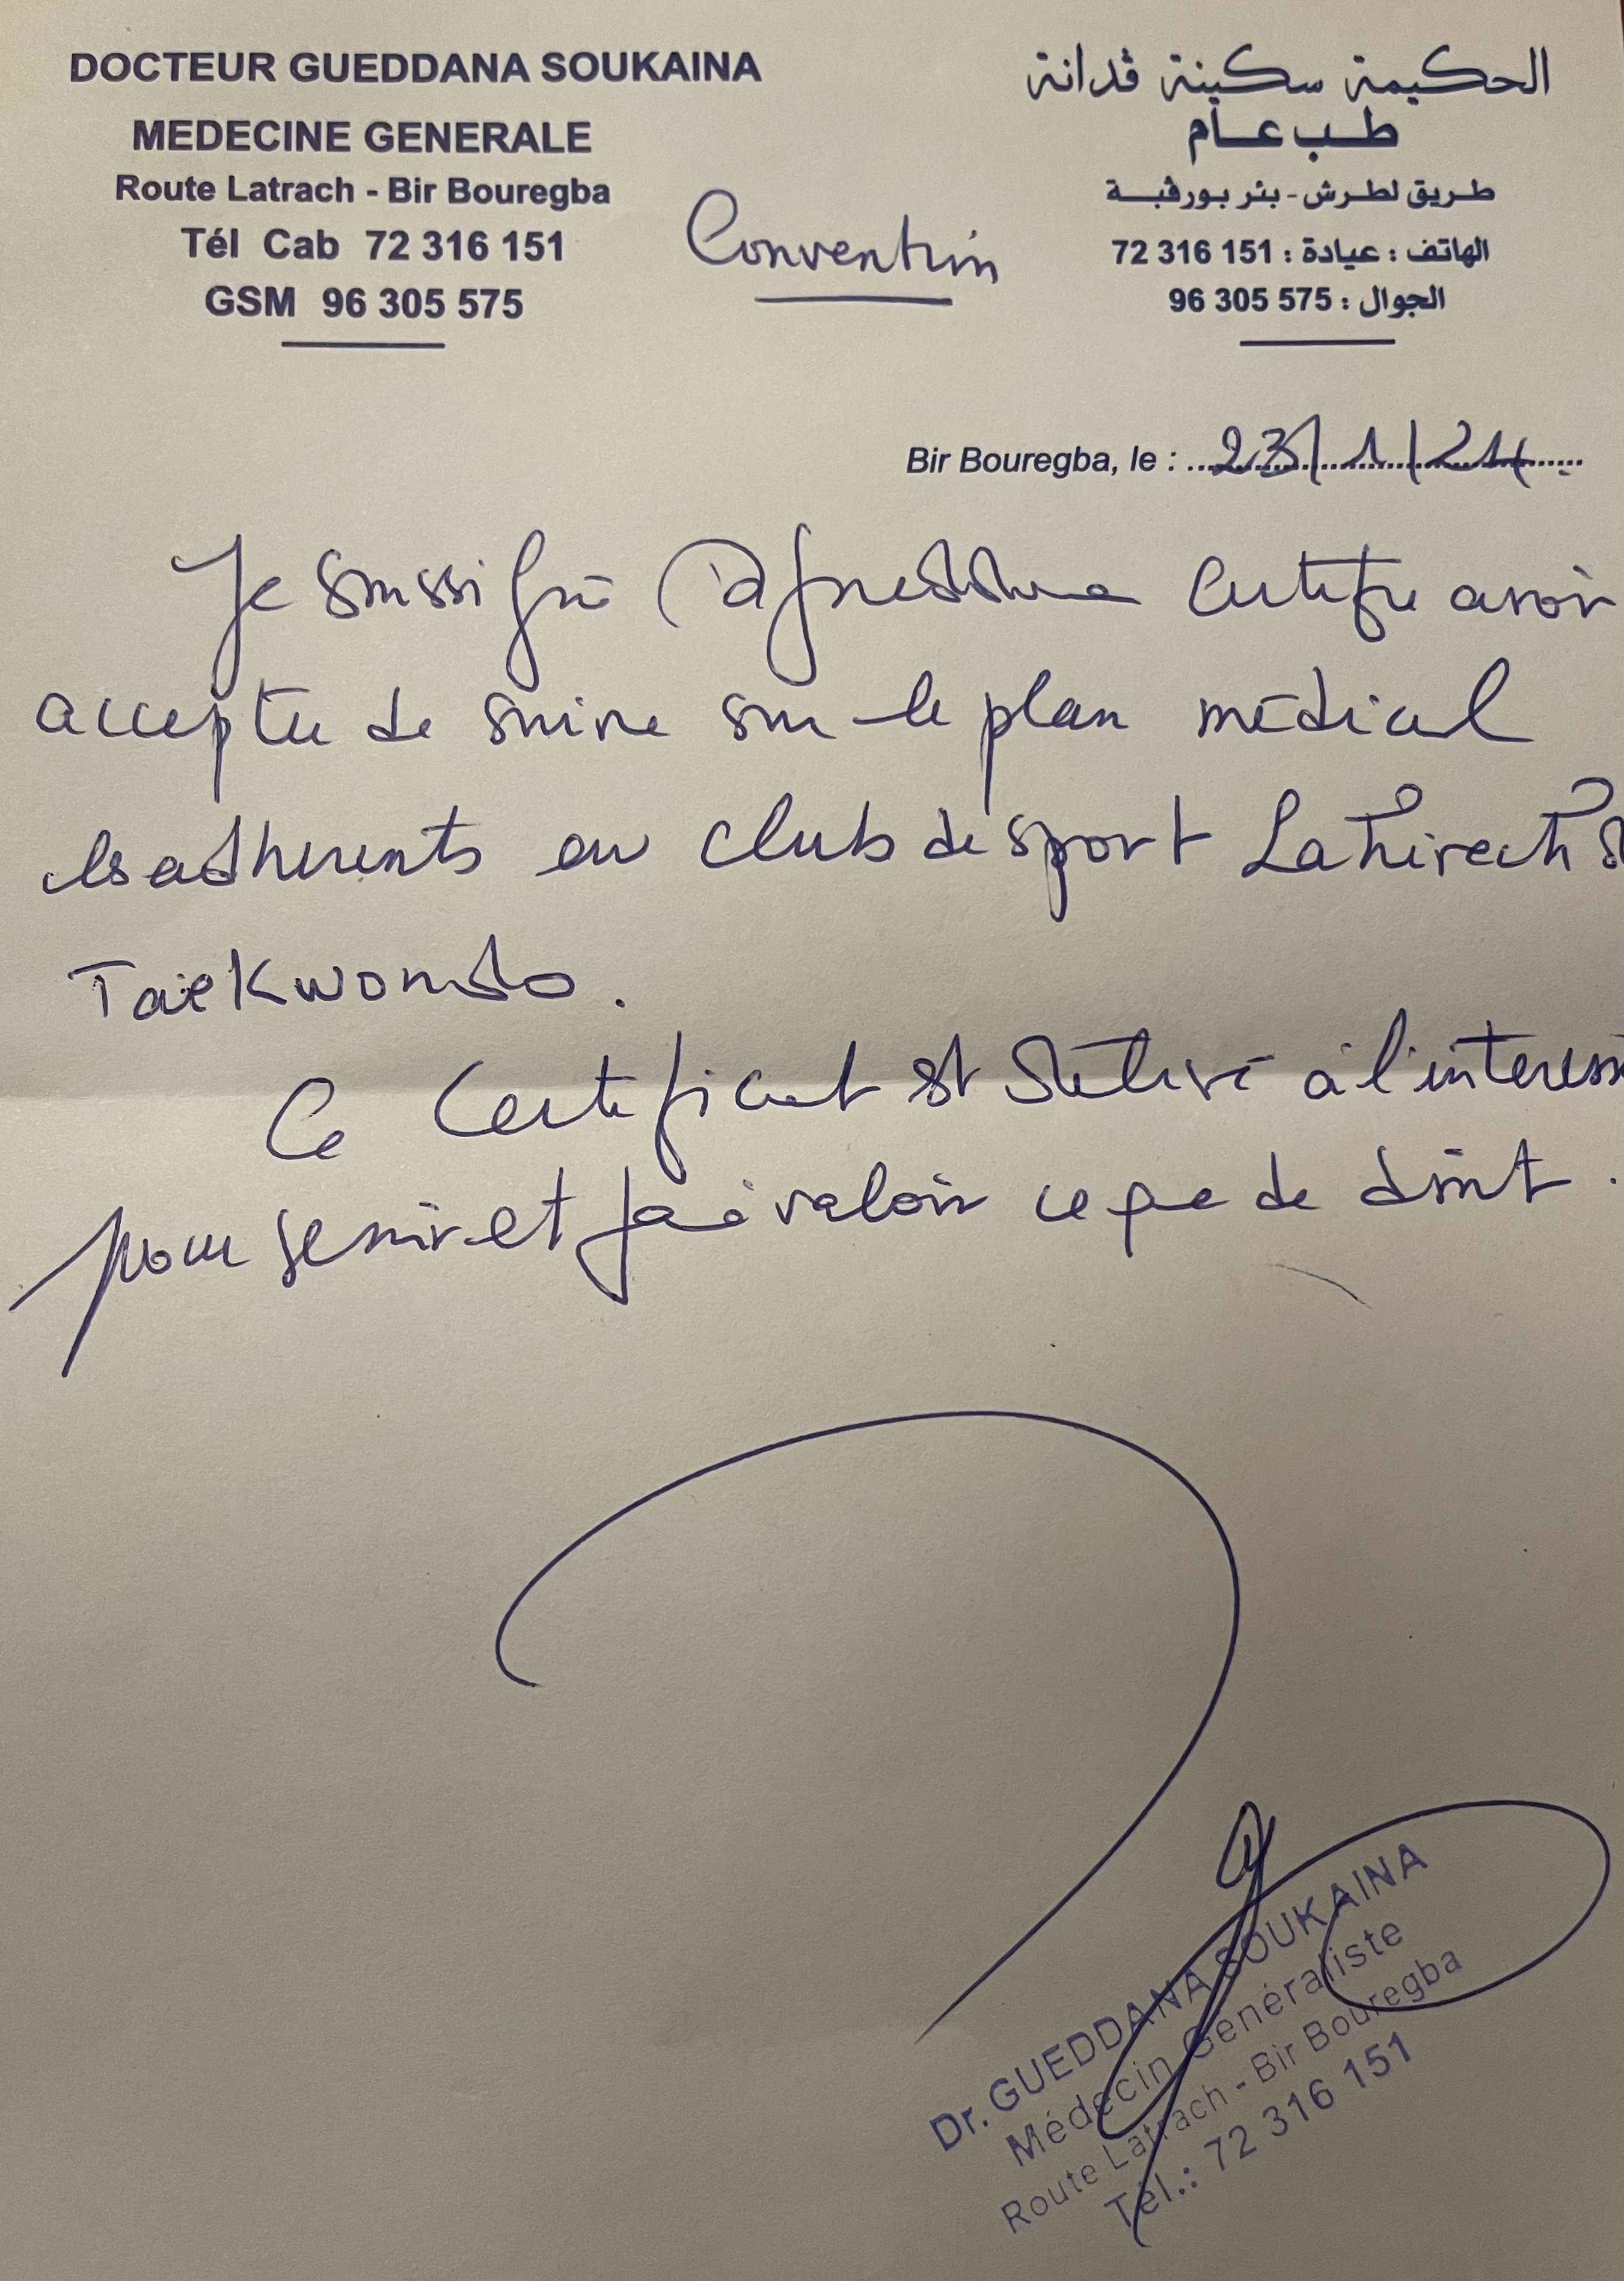 DOCTEUR GUEDDANA SOUKAINA
MEDECINE GENERALE
Route Latrach - Bir Bouregba
Tél Cab 72 316 151
GSM 96 305 575
Convention
الحكيمة سكينة ڤدانة
طب عام
طريق لطرش - بئر بورڤبة
الهاتف : عيادة : 151 316 72
الجوال : 575 305 96
Bir Bouregba, le : 23/1/24
Je soussigné Dr Gueddana certifie avoir
accepter de suivre sur le plan médical
les adherents au club de sport
Taekwondo.
Ce certificat est délivré à l'interessé
pour servir et faire valoir ce que de droit.
Dr. GUEDDANA SOUKAINA
Médecin Généraliste
Route Latrach - Bir Bouregba
Tél.: 72 316 151